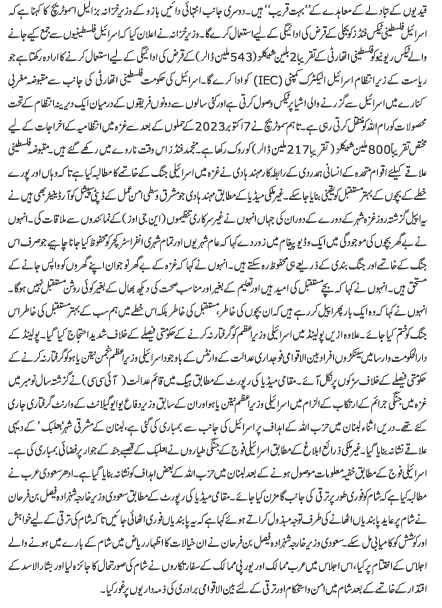 قیدیوں کے تبادلے کے معاہدے کے ”بہت قریب“ ہیں۔ دوسری جانب انتہائی دائیں بازو کے وزیر خزانہ بزالیل اسموٹریچ نے کہا کہ
اسرائیل فلسطینی ٹیکس فنڈز کو بجلی کے قرض کی ادائیگی کے لیے استعمال کرے گا۔ وزیر خزانہ نے اعلان کیا کہ اسرائیل فلسطینیوں سے جمع کیے جانے
والے ٹیکس ریونیو کو فلسطینی اتھارٹی کے تقریباً 2 بلین شیکلز (543 ملین ڈالر) کے قرض کی ادائیگی کے لیے استعمال کرنے کا ارادہ رکھتا ہے جو
ریاست کے زیر انتظام اسرائیل الیکٹرک کمپنی (IEC) کو ادا کرے گا۔ اسرائیل کی حکومت فلسطینی اتھارٹی کی جانب سے مقبوضہ مغربی
کنارے میں اسرائیل سے گزرنے والی اشیا پر ٹیکس وصول کرتی ہے اور کئی سالوں سے دونوں فریقوں کے درمیان ایک دیرینہ انتظام کے تحت
محصولات کو رام اللہ کو منتقل کرتی رہی ہے۔ تاہم سموٹریچ نے 7 اکتوبر 2023 کے حملوں کے بعد سے غزہ میں انتظامیہ کے اخراجات کے لیے
مختص تقریباً 800 ملین شیکلز ( تقریباً 217 ملین ڈالر) کو روک رکھا ہے۔ منجمد فنڈز اس وقت ناروے میں رکھے گئے ہیں۔ مقبوضہ فلسطینی
علاقے کیلئے اقوام متحدہ کے انسانی ہمدردی کے رابطہ کار مہند ہادی نے غزہ میں اسرائیلی جنگ کے خاتمے کا مطالبہ کیا ہے تا کہ وہاں اور پورے
خطے کے بچوں کے بہتر مستقبل کو یقینی بنایا جا سکے۔ غیر ملکی میڈیا کے مطابق مہند ہادی جو مشرق وسطی امن عمل کے ڈپٹی سپیشل کوآرڈینیٹر بھی ہیں نے
یہ اپیل گزشتہ روز غزہ شہر کے دورے کے دوران کی جہاں انہوں نے غیر سرکاری تنظیموں (این جی اوز) کے نمائندوں سے ملاقات کی۔ انہوں
نے بے گھر بچوں کی موجودگی میں ایک ویڈیو پیغام میں زور دے کر کہا کہ عام شہریوں اور تمام شہری انفراسٹرکچر کو محفوظ کیا جانا چاہیے جو صرف اس
جنگ کے خاتمے اور جنگ بندی کے ذریعے ہی محفوظ رہ سکتے ہیں۔ انہوں نے کہا کہ غزہ کے بے گھر نوجوان اپنے گھروں کو واپس جانے کے
مستحق ہیں۔ انہوں نے کہا کہ بچے مستقبل کی امید ہیں اور تعلیم کے بغیر اور مناسب صحت کی دیکھ بھال کے بغیر کوئی روشن مستقبل نہیں ہو گا۔
انہوں نے ایک بار پھر اپیل کرتے ہوئے کہا کہ ان بچوں کی خاطر، مستقبل کی خاطر، بلکہ اس خطے میں ہم سب کے بہتر مستقبل کی خاطر اس
جنگ کو ختم کیا جائے۔ علاوہ ازیں پولینڈ میں اسرائیلی وزیر اعظم کو گرفتار نہ کرنے کے حکومتی فیصلے کے خلاف شدید احتجاج کیا گیا۔ پولینڈ کے
دارالحکومت وارسا میں سینکڑوں افراد بین الاقوامی فوجداری عدالت کے وارنٹس کے باوجود اسرائیلی وزیر اعظم بنجمن نیتن یاہو کو گرفتار نہ کرنے کے
حکومتی فیصلے کے خلاف سڑکوں پر نکل آئے۔ مقامی میڈیا کی رپورٹ کے مطابق ہیگ میں قائم عدالت ( آئی سی سی) نے گزشتہ سال نومبر میں
غزہ میں جنگی جرائم کے ارتکاب کے الزام میں اسرائیلی وزیر اعظم نیتن یاہو اور ان کے سابق وزیر دفاع یوایو گیلانٹ کے وارنٹ گرفتاری جاری
کئے تھے۔ دریں اثناء لبنان میں حزب اللہ کے اہداف پر اسرائیل کی جانب سے بمباری کی گئی ہے، لبنان کے مشرقی شہر ’بعلبک‘ کے دیہی
علاقے نشانہ بنایا گیا۔ غیر ملکی ذرائع ابلاغ کے مطابق اسرائیلی فوج کے جنگی طیاروں نے بعلبک کے قصبے جنتہ کے جوار پر فضائی بمباری کی ہے۔
اسرائیلی فوج کے مطابق خفیہ معلومات موصول ہونے کے بعد لبنان میں حزب اللہ کے بعض اہداف کو نشانہ بنایا گیا ہے۔ ادھر سعودی عرب نے
مطالبہ کیا ہے کہ شام کو فوری طور پر ترقی کی جانب گامزن کیا جائے۔ مقامی میڈیا کی رپورٹ کے مطابق سعودی وزیر خارجہ شہزادہ فیصل بن فرحان
نے شام پر عاید پابندیاں اٹھانے کی طرف توجہ مبذول کراتے ہوئے کہا ہے کہ یہ پابندیاں فوری اٹھائی جائیں تا کہ شام کی ترقی کے لیے خواہش
اور کوشش کو کامیابی مل سکے۔ سعودی وزیر خارجہ شہزادہ فیصل بن فرحان نے ان خیالات کا اظہار ریاض میں شام کے بارے میں ہونے والے
اجلاس کے اختتام پر کیا، اس اجلاس میں عرب ممالک اور یورپی ممالک کے سفارتکاروں نے شام کی صورتحال کا جائزہ لیا اور بشار الاسد کے
اقتدار کے خاتمے کے بعد شام میں امن و استحکام اور ترقی کے لئے بین الاقوامی برادری کی ذمہ داریوں پر غور کیا۔